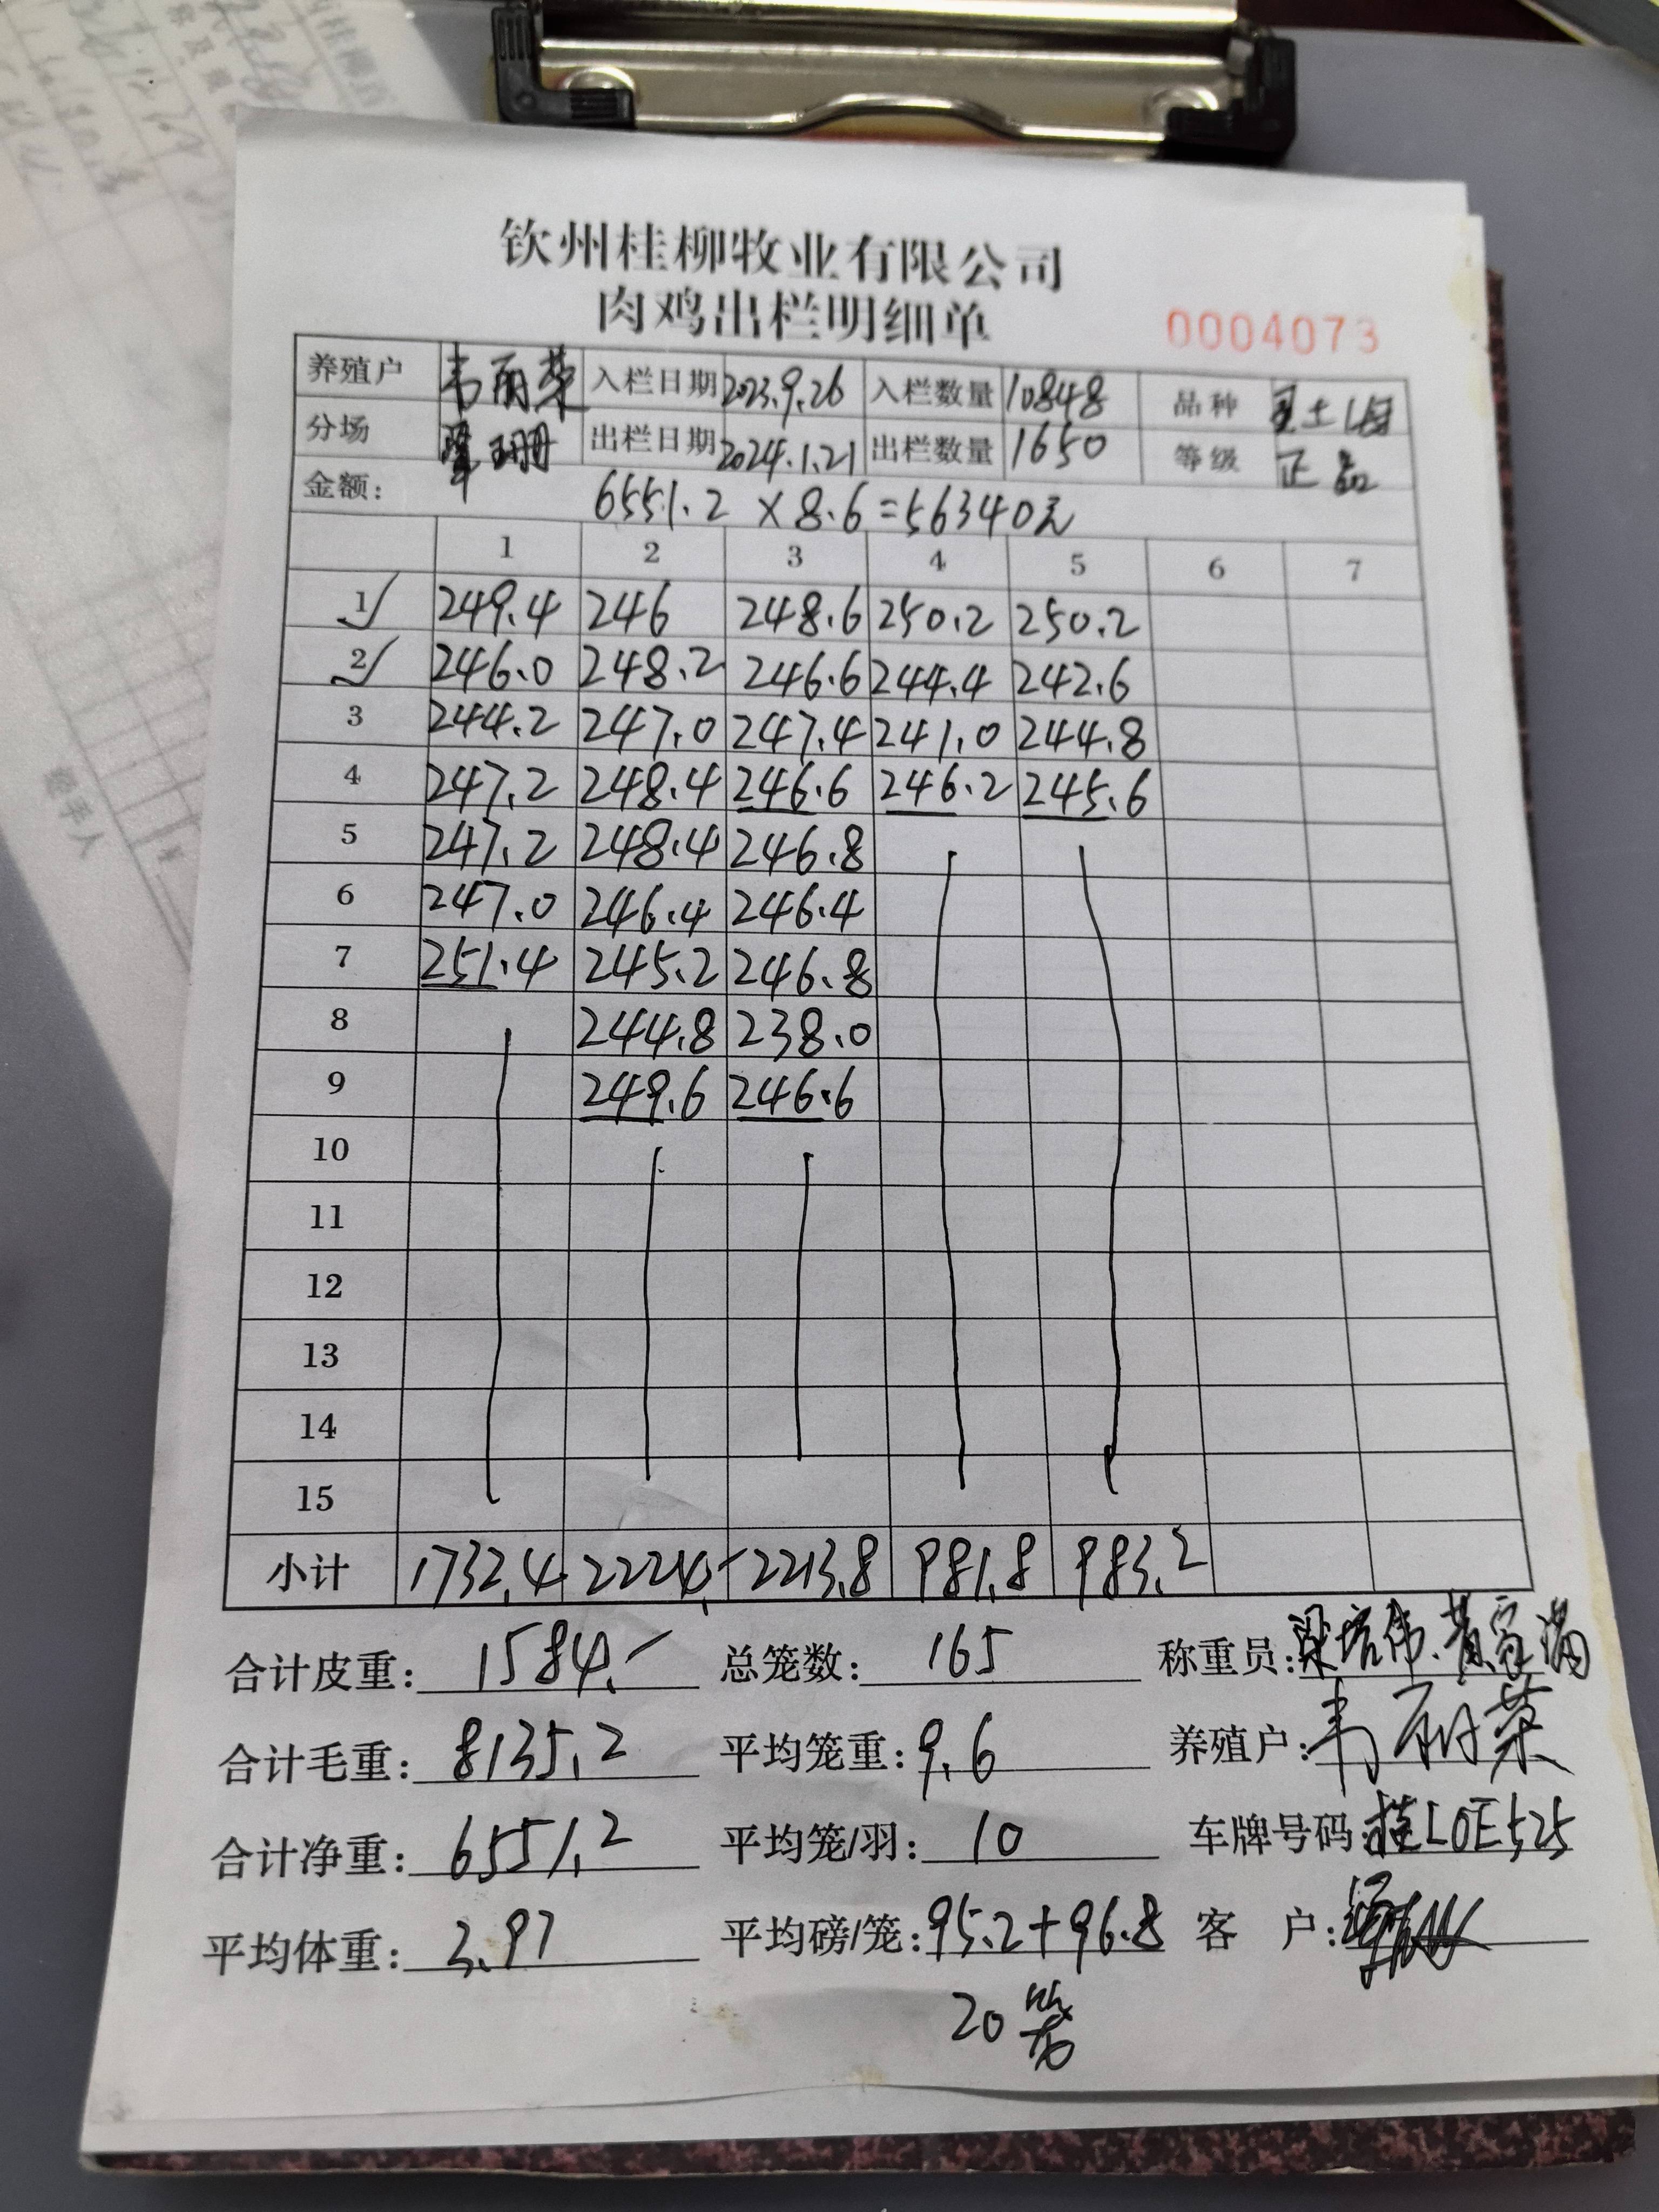 钦州桂柳牧业有限公司
肉鸡出栏明细单
0004073
养殖户 韦丽荣 入栏日期 2023.9.26 入栏数量 10848 品种 土
分场 珊 出栏日期 2024.1.21 出栏数量 1650 等级 正品
金额: 6551.2 × 8.6 = 56340元
1 2 3 4 5 6 7
1 249.4 246 248.6 250.2 250.2
2 246.0 248.2 246.6 244.4 242.6
3 244.2 247.0 247.4 241.0 244.8
4 247.2 248.4 246.6 246.2 245.6
5 247.2 248.4 246.8
6 247.0 246.4 246.4
7 251.4 245.2 246.8
8 244.8 238.0
9 249.6 246.6
10
11
12
13
14
15
小计 1732.4 2224.- 2213.8 981.8 983.2
合计皮重: 1584.- 总笼数: 165 称重员: 梁培伟.黄家满
合计毛重: 8135.2 平均笼重: 9.6 养殖户: 韦丽荣
合计净重: 6551.2 平均笼/羽: 10 车牌号码: 桂L0E525
平均体重: 3.97 平均磅/笼: 95.2+96.8 客 户:
20笼
经手人